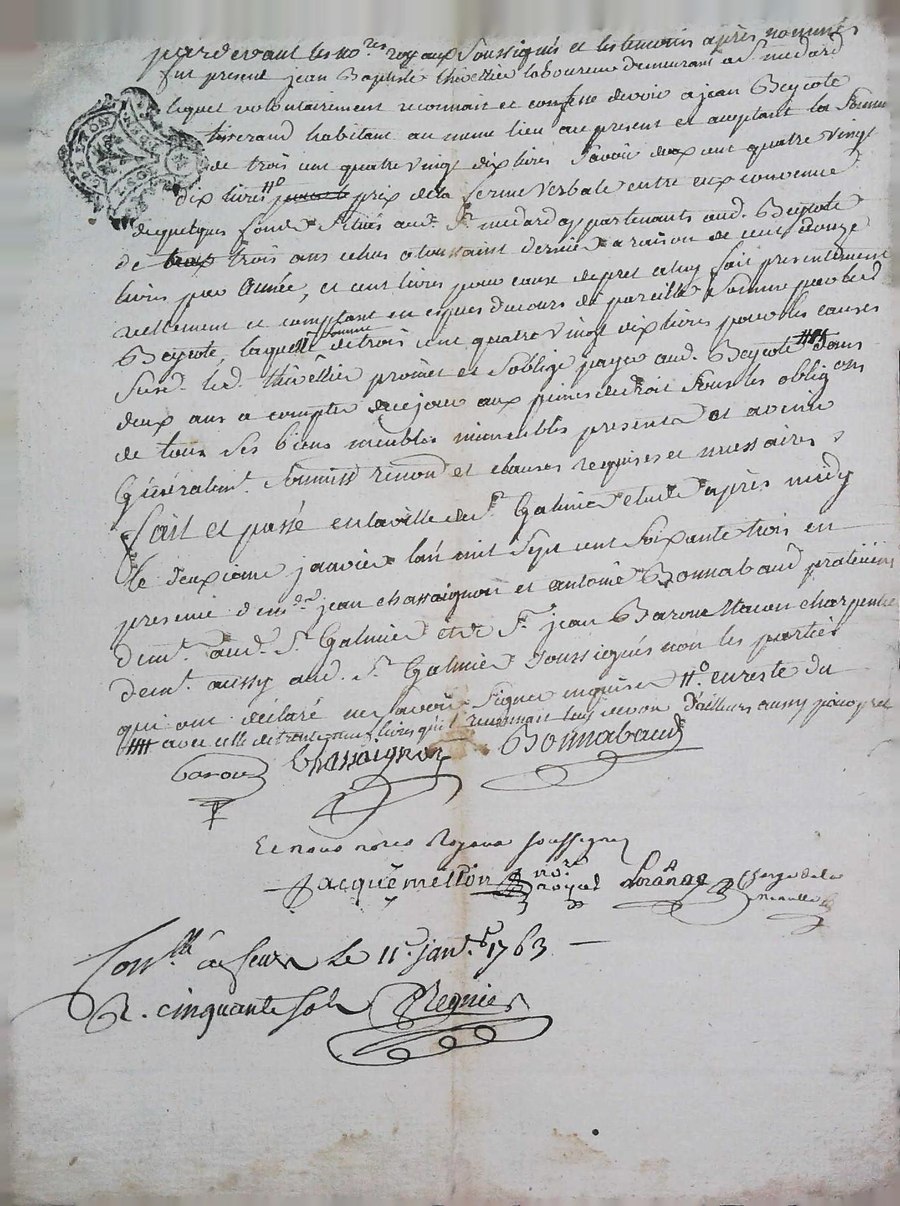 pardevant les no.res royaux soussignés et les temoins après nommés
fut present jean Baptiste thivellier laboureur demeurant a S.t medard
lequel volontairement reconnait et confesse devoir a jean Beycote
tisserand habitant au meme lieu au present et aceptant la somme
de trois cent quatre vingt dix livres savoir deux cent quatre vingt
dix livres prix de la ferme verbale entre eux convenue
de quelques fonds situés aud. S.t medard appartenants aud. Beycote
de trois ans echus a toussaint dernier a raison de cent douze
livres par année, et cent livres pour cause de pret a luy fait presentement
reellement et comptant en especes du cours de pareille somme par led.
Beycote, laquelle somme de trois cent quatre vingt dix livres pour les causes
susd. led. thivellier promet et s'oblige payer aud. Beycote dans
deux ans a compter de ce jour aux peines de droit sous les oblig.ons
de tous ses biens meubles immeubles presents et avenir
Généralem.t soumiss renon.d et clauses requises et nessaires
fait et passé en la ville de S.t Galmier etude après midy
le deuxieme janvier l'an mil sept cent soixante trois en
presence de m.e jean chassaignon et antoine Bonnabaud praticiens
dem.t aud. S.t Galmier et de S.r jean Barou Macon charpentier
dem.t aussy aud. S.t Galmier soussignés non les parties
qui ont déclaré ne savoir signer enquises en reste du
avec celle de trente livres qu'il reconnait luy devoir d'ailleurs aussy
barou Chassaignon Bonnabaud
Et nous no.res Royaux soussignez
Jacquemetton no.re royal
Con.lle à feurs le 11.e janv.er 1763
R. cinquante sols Regnier